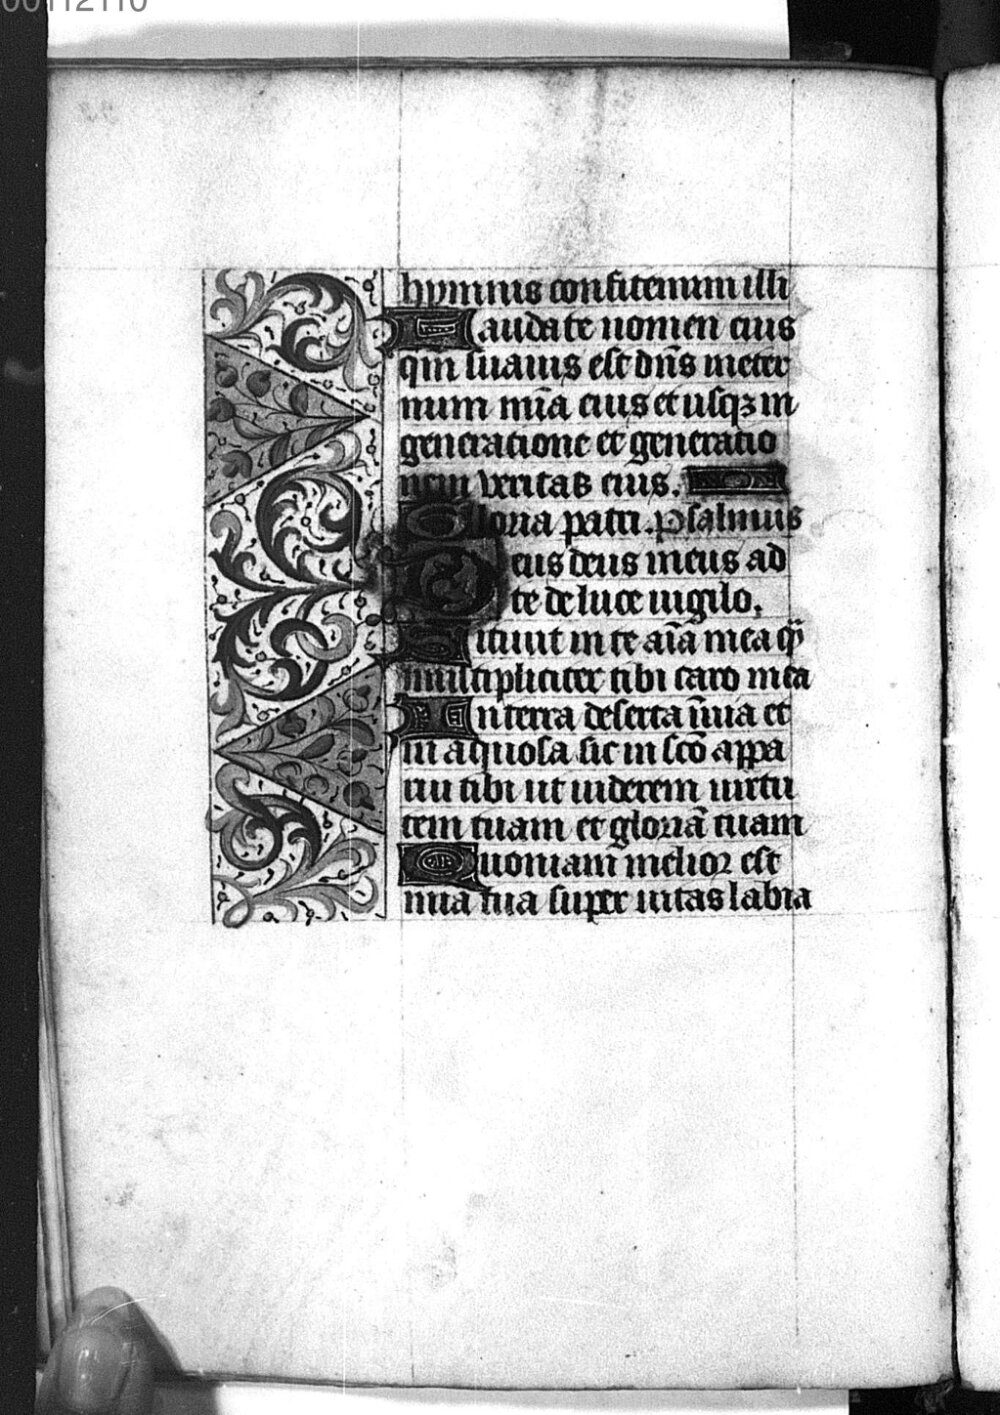 00112110
hymnus confitemini illi
Laudate nomen eius
qm̄ suauis est dn̄s in eter
num mīa eius et usqꝫ in
generatione et generatio
nem veritas eius.
Gloria patri. Psalmus
Deus deus meus ad
te de luce uigilo.
Sitiuit in te aīa mea qͣ̄
multipliciter tibi caro mea
In terra deserta īuia et
in aquosa sic in scō appa
rui tibi ut uiderem uirtu
tem tuam et gloriā tuam
Quoniam melior est
mīa tua super uitas labia